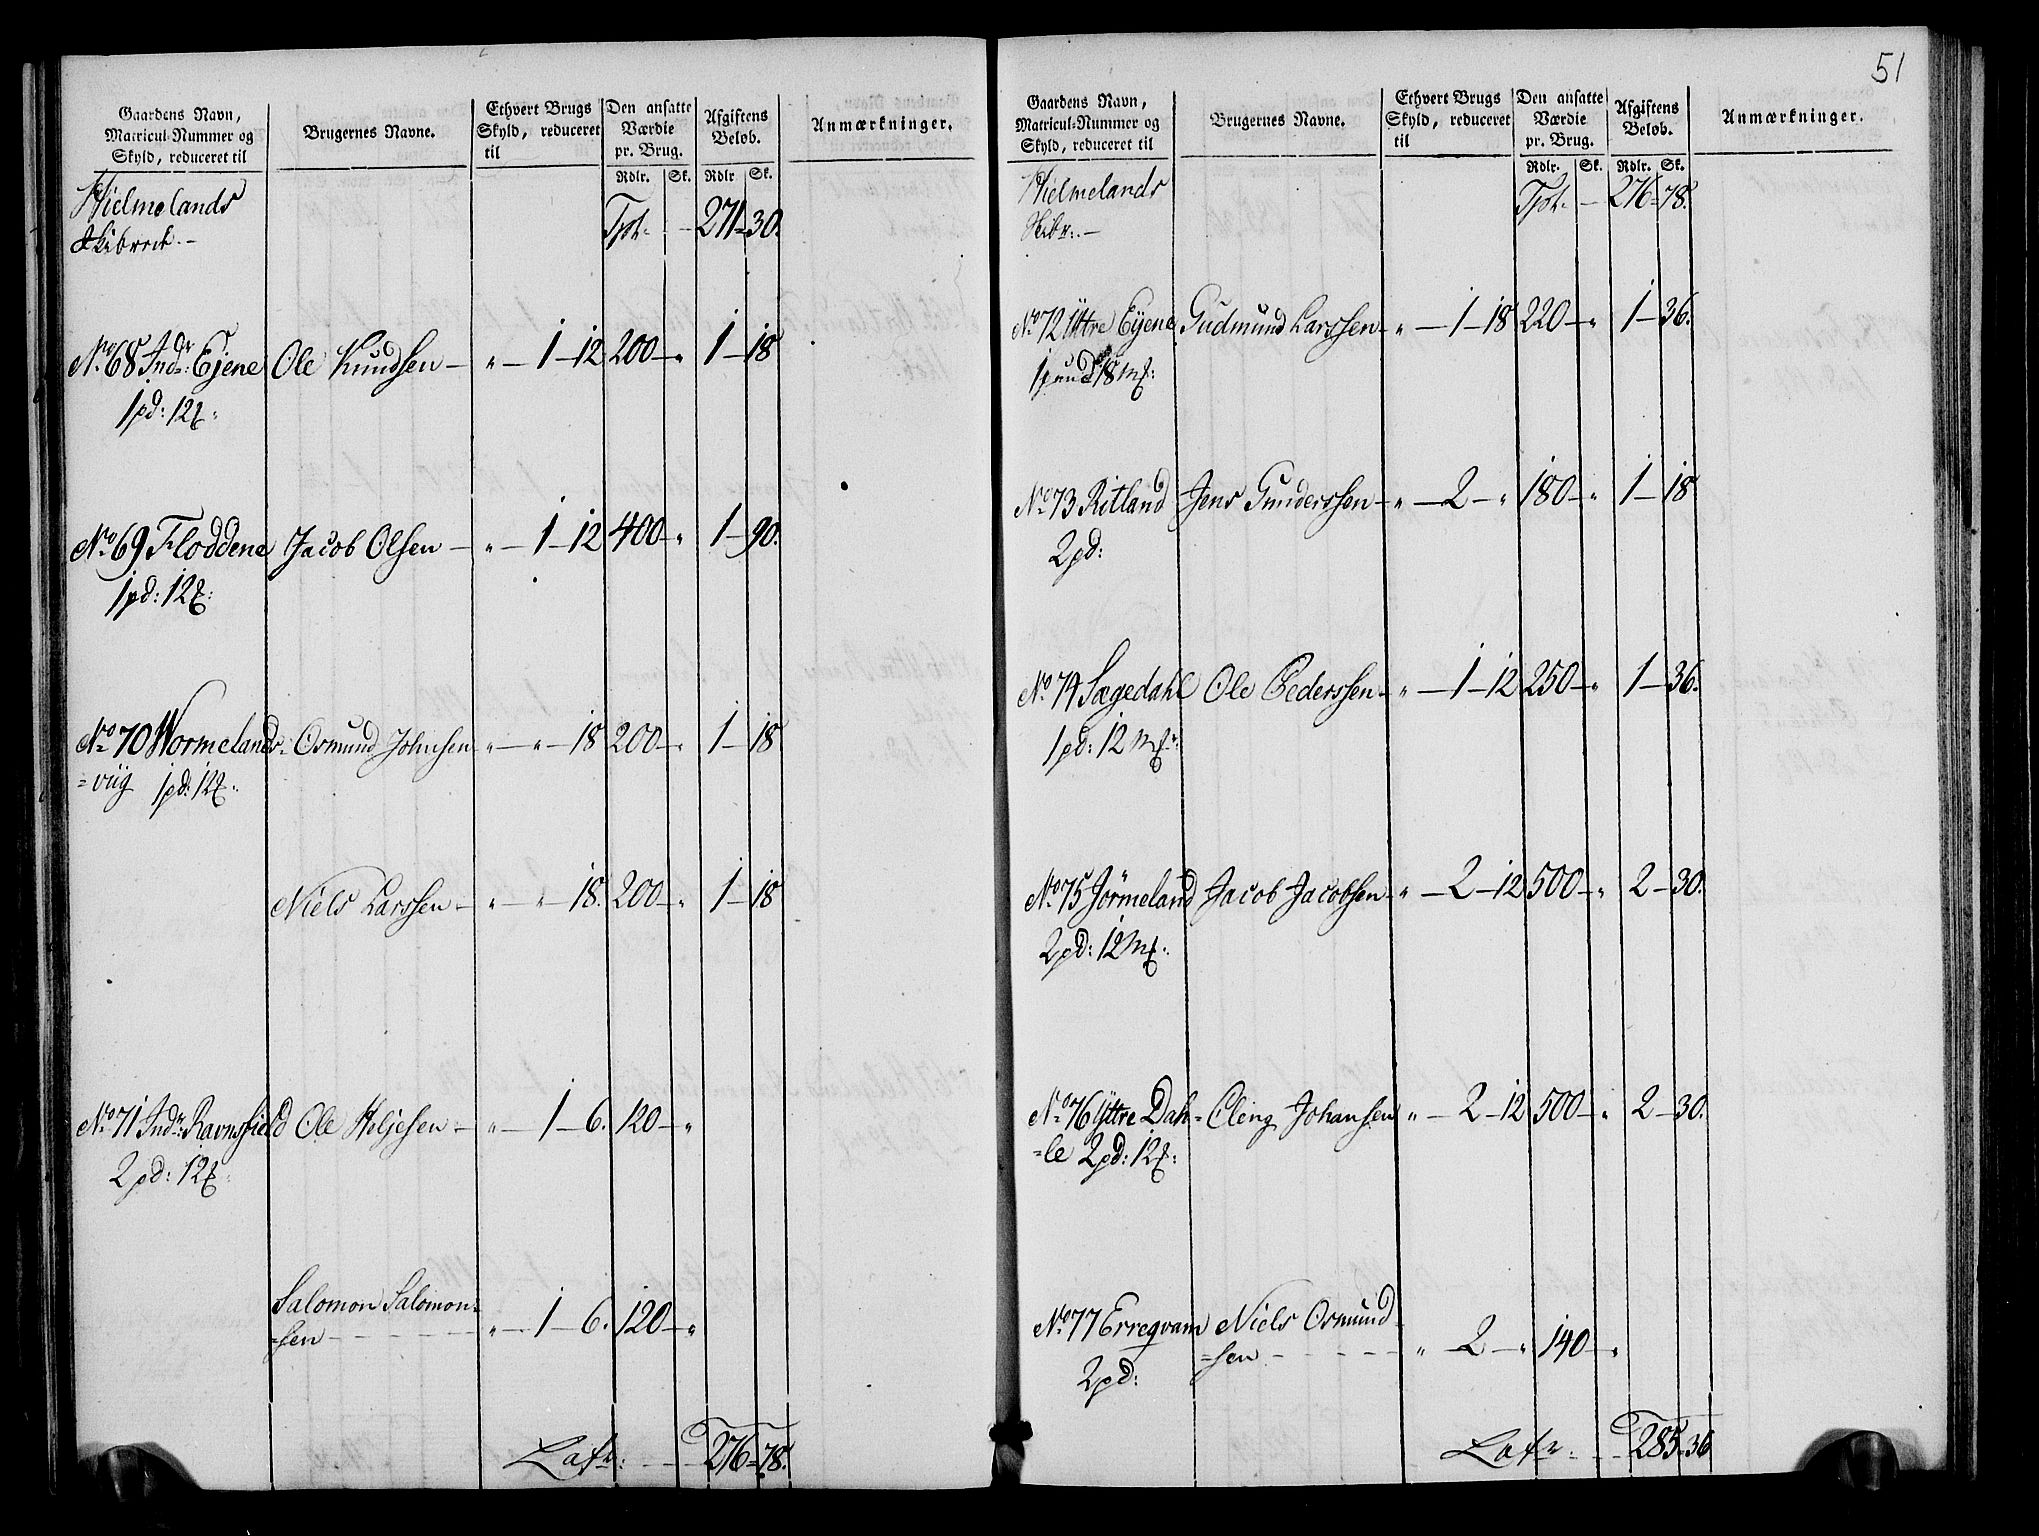 Gaardens Navn, Matricul-Nummer og Skyld, reduceret til | Brugernes Navne. | Ethvert Brugs Skyld, reduceret til | Den ansatte Værdie pr. Brug. | Afgiftens Beløb. | Anmærkninger.
Rdlr. Sk. Rdlr Sk.
Hielmelands Tpt. - - 271-30.
Skibrede. -
No 68 Indr: Ejene Ole Knudsen - „ - 1 - 12 200 - „ 1 - 18
1pd: 12
No 69 Floddene Jacob Olsen - „ - 1 - 12 400 - „ 1 - 90.
1pd: 12
No 70 Wormelands- Osmund Johnsen „ - „ - 18 200 - „ 1 - 18
=viig 1pd: 12
Niels Larssen - „ - „ - 18. 200 - „ 1 - 18
No 71 Indr: Ravnsfield Ole Heljesen - „ - 1 - 6. 120 - „
2pd: 12
Salomon Salomon=
=sen - - - - „ - 1 - 6. 120 - „
Latr: - - 276-78.
51
Gaardens Navn, Matricul-Nummer og Skyld, reduceret til | Brugernes Navne. | Ethvert Brugs Skyld, reduceret til | Den ansatte Værdie pr. Brug. | Afgiftens Beløb. | Anmærkninger.
Rdlr. Sk. Rdlr. Sk.
Hielmelands Tpt. - 276-78.
Skibr: -
No 72 Yttre Eyene Gudmund Larssen - „ - 1 - 18 220 - „ 1 - 36.
1pund 18 Mk:
No 73 Ritland Jens Gunderssen - „ - 2 - „ 180 - „ 1 - 18
2pd:
No 74 Sægedahl Ole Pederssen - „ - 1 - 12 250 - „ 1 - 36.
1pd: 12 Mk:
No 75 Jörmeland Jacob Jacobsen - „ - 2 - 12 500 - „ 2 - 30.
2pd: 12 Mk:
No 76 Yttre Dah= Eling Johansen „ - 2 - 12 500 - „ 2 - 30.
=le 2pd: 12
No 77 Erreqvam Niels Osmund
=sen - - - - „ - 2 - „ 140 - „
2pd:
Latr: - - 285-36